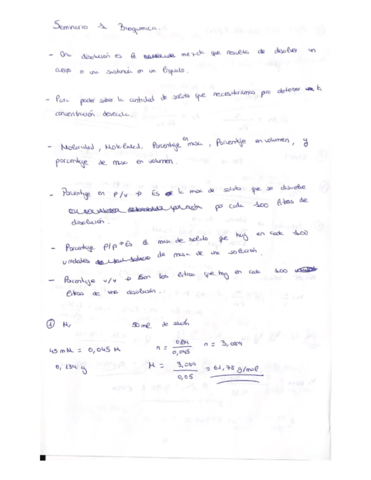 Seminario 1: Bioquímica.
- Una disolución es la mezcla que resulta de disolver un
cuerpo o una sustancia en un líquido.
- Para poder saber la cantidad de soluto que necesitamos para obtener la
concentración deseada.
- Molaridad, Molalidad, Porcentaje en masa, Porcentaje en volumen, y
porcentaje de masa en volumen.
- Porcentaje en p/v → Es la masa de soluto que se disuelve
por cada 100 litros de
disolución.
- Porcentaje p/p → Es la masa de soluto que hay en cada 100
unidades de masa de una solución.
- Porcentaje v/v → Son los litros que hay en cada 100
litros de una disolución.
① Mr 50 ml de
45 mM = 0,045 M n = 0,045 n = 3,084
0,139 g M = 3,084 / 0,05 = 61,78 g/mol